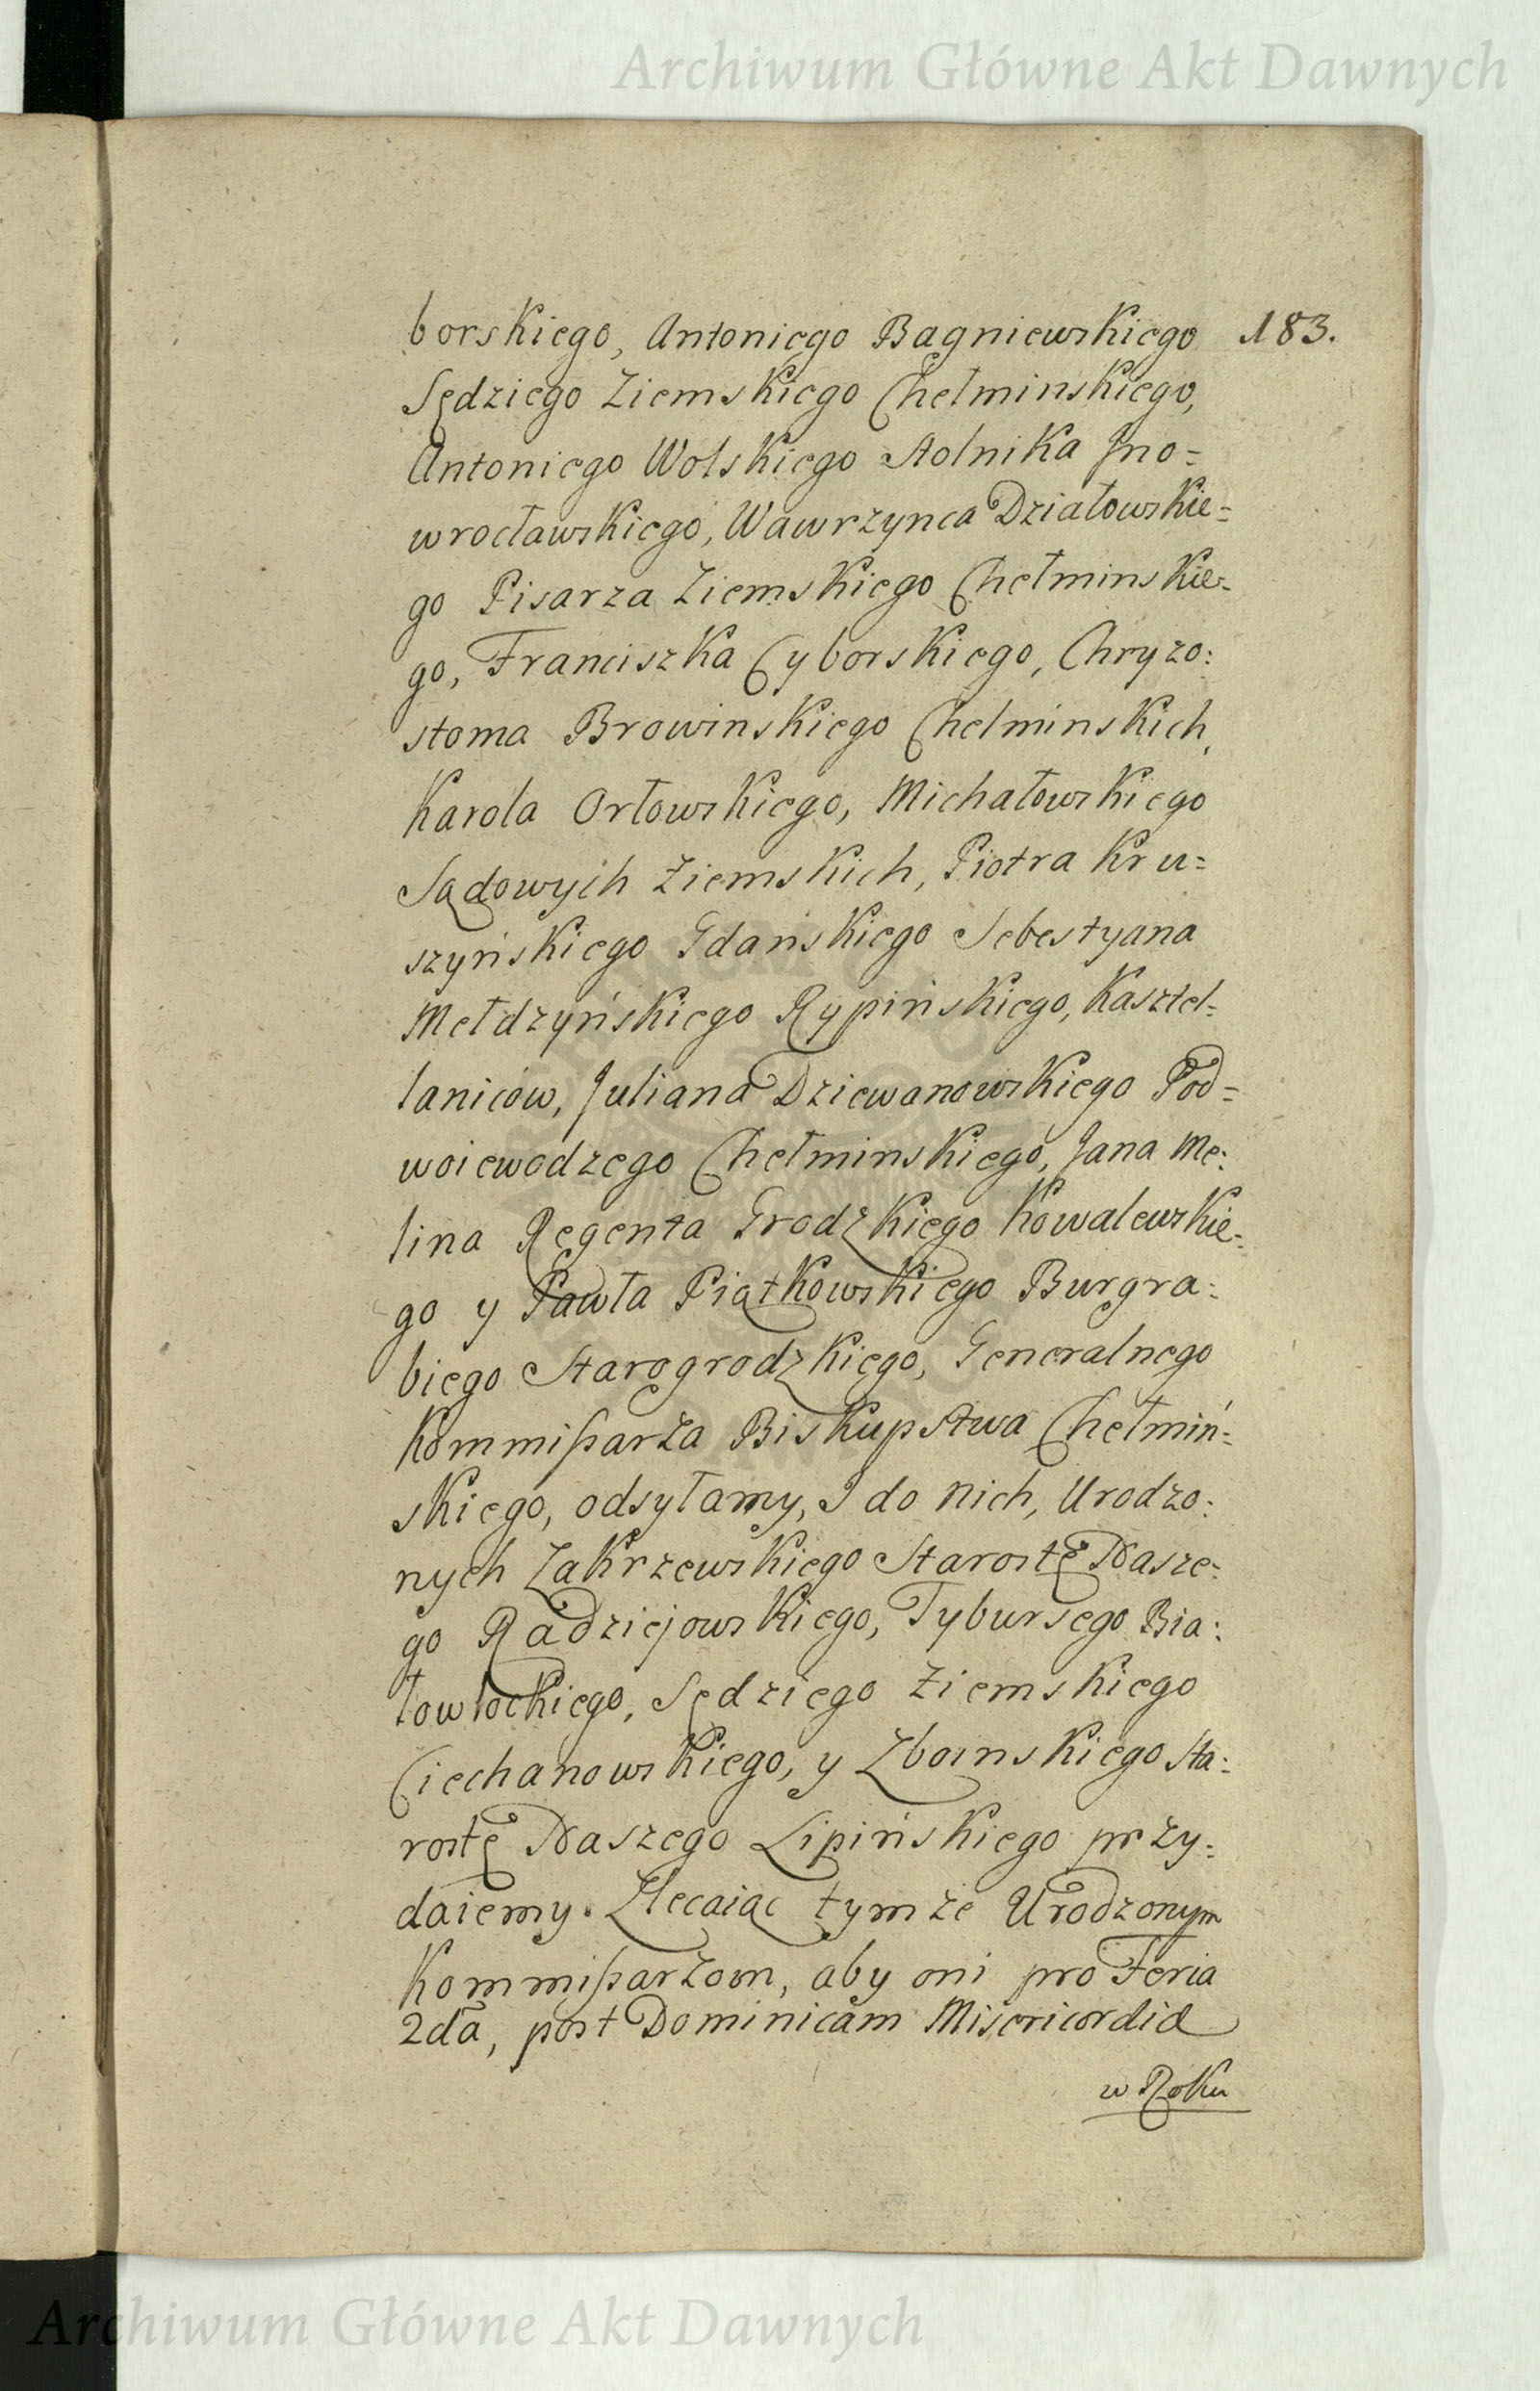 Archiwum Główne Akt Dawnych
borskiego, Antoniego Bagniewskiego 183.
Sędziego Ziemskiego Chełminskiego,
Antoniego Wolskiego Stolnika Jno=
wrocławskiego, Wawrzynca Działowskie=
go Pisarza Ziemskiego Chełminskie=
go, Franciszka Cyborskiego, Chryzo:
stoma Browinskiego Chelminskich,
Karola Orłowskiego, Michałowskiego
Sądowych Ziemskich, Piotra Kru=
szyńskiego Gdańskiego Sebestyana
Mełdzyńskiego Rypińskiego, Kasztel=
laniców, Juliana Dziewanowskiego Pod=
woiewodzego Chełminskiego, Jana Me:
lina Regenta Grodzkiego Kowalewskie=
go y Pawła Piątkowskiego Burgra:
biego Starogrodzkiego, Generalnego
Kommißarza Biskupstwa Chełmiń=
skiego, odsyłamy, I do nich, Urodzo:
nych Zakrzewskiego Starostę Nasze:
go Radziejowskiego, Tybursego Bia:
łowłockiego, Sędziego Ziemskiego
Ciechanowskiego, y Zboinskiego Sta:
rostę Naszego Lipińskiego przy:
daiemy. Zlecaiąc tymże Urodzonym
Kommißarzom, aby oni pro Feria
2dâ, post Dominicam Misericordia
w Roku
Archiwum Główne Akt Dawnych